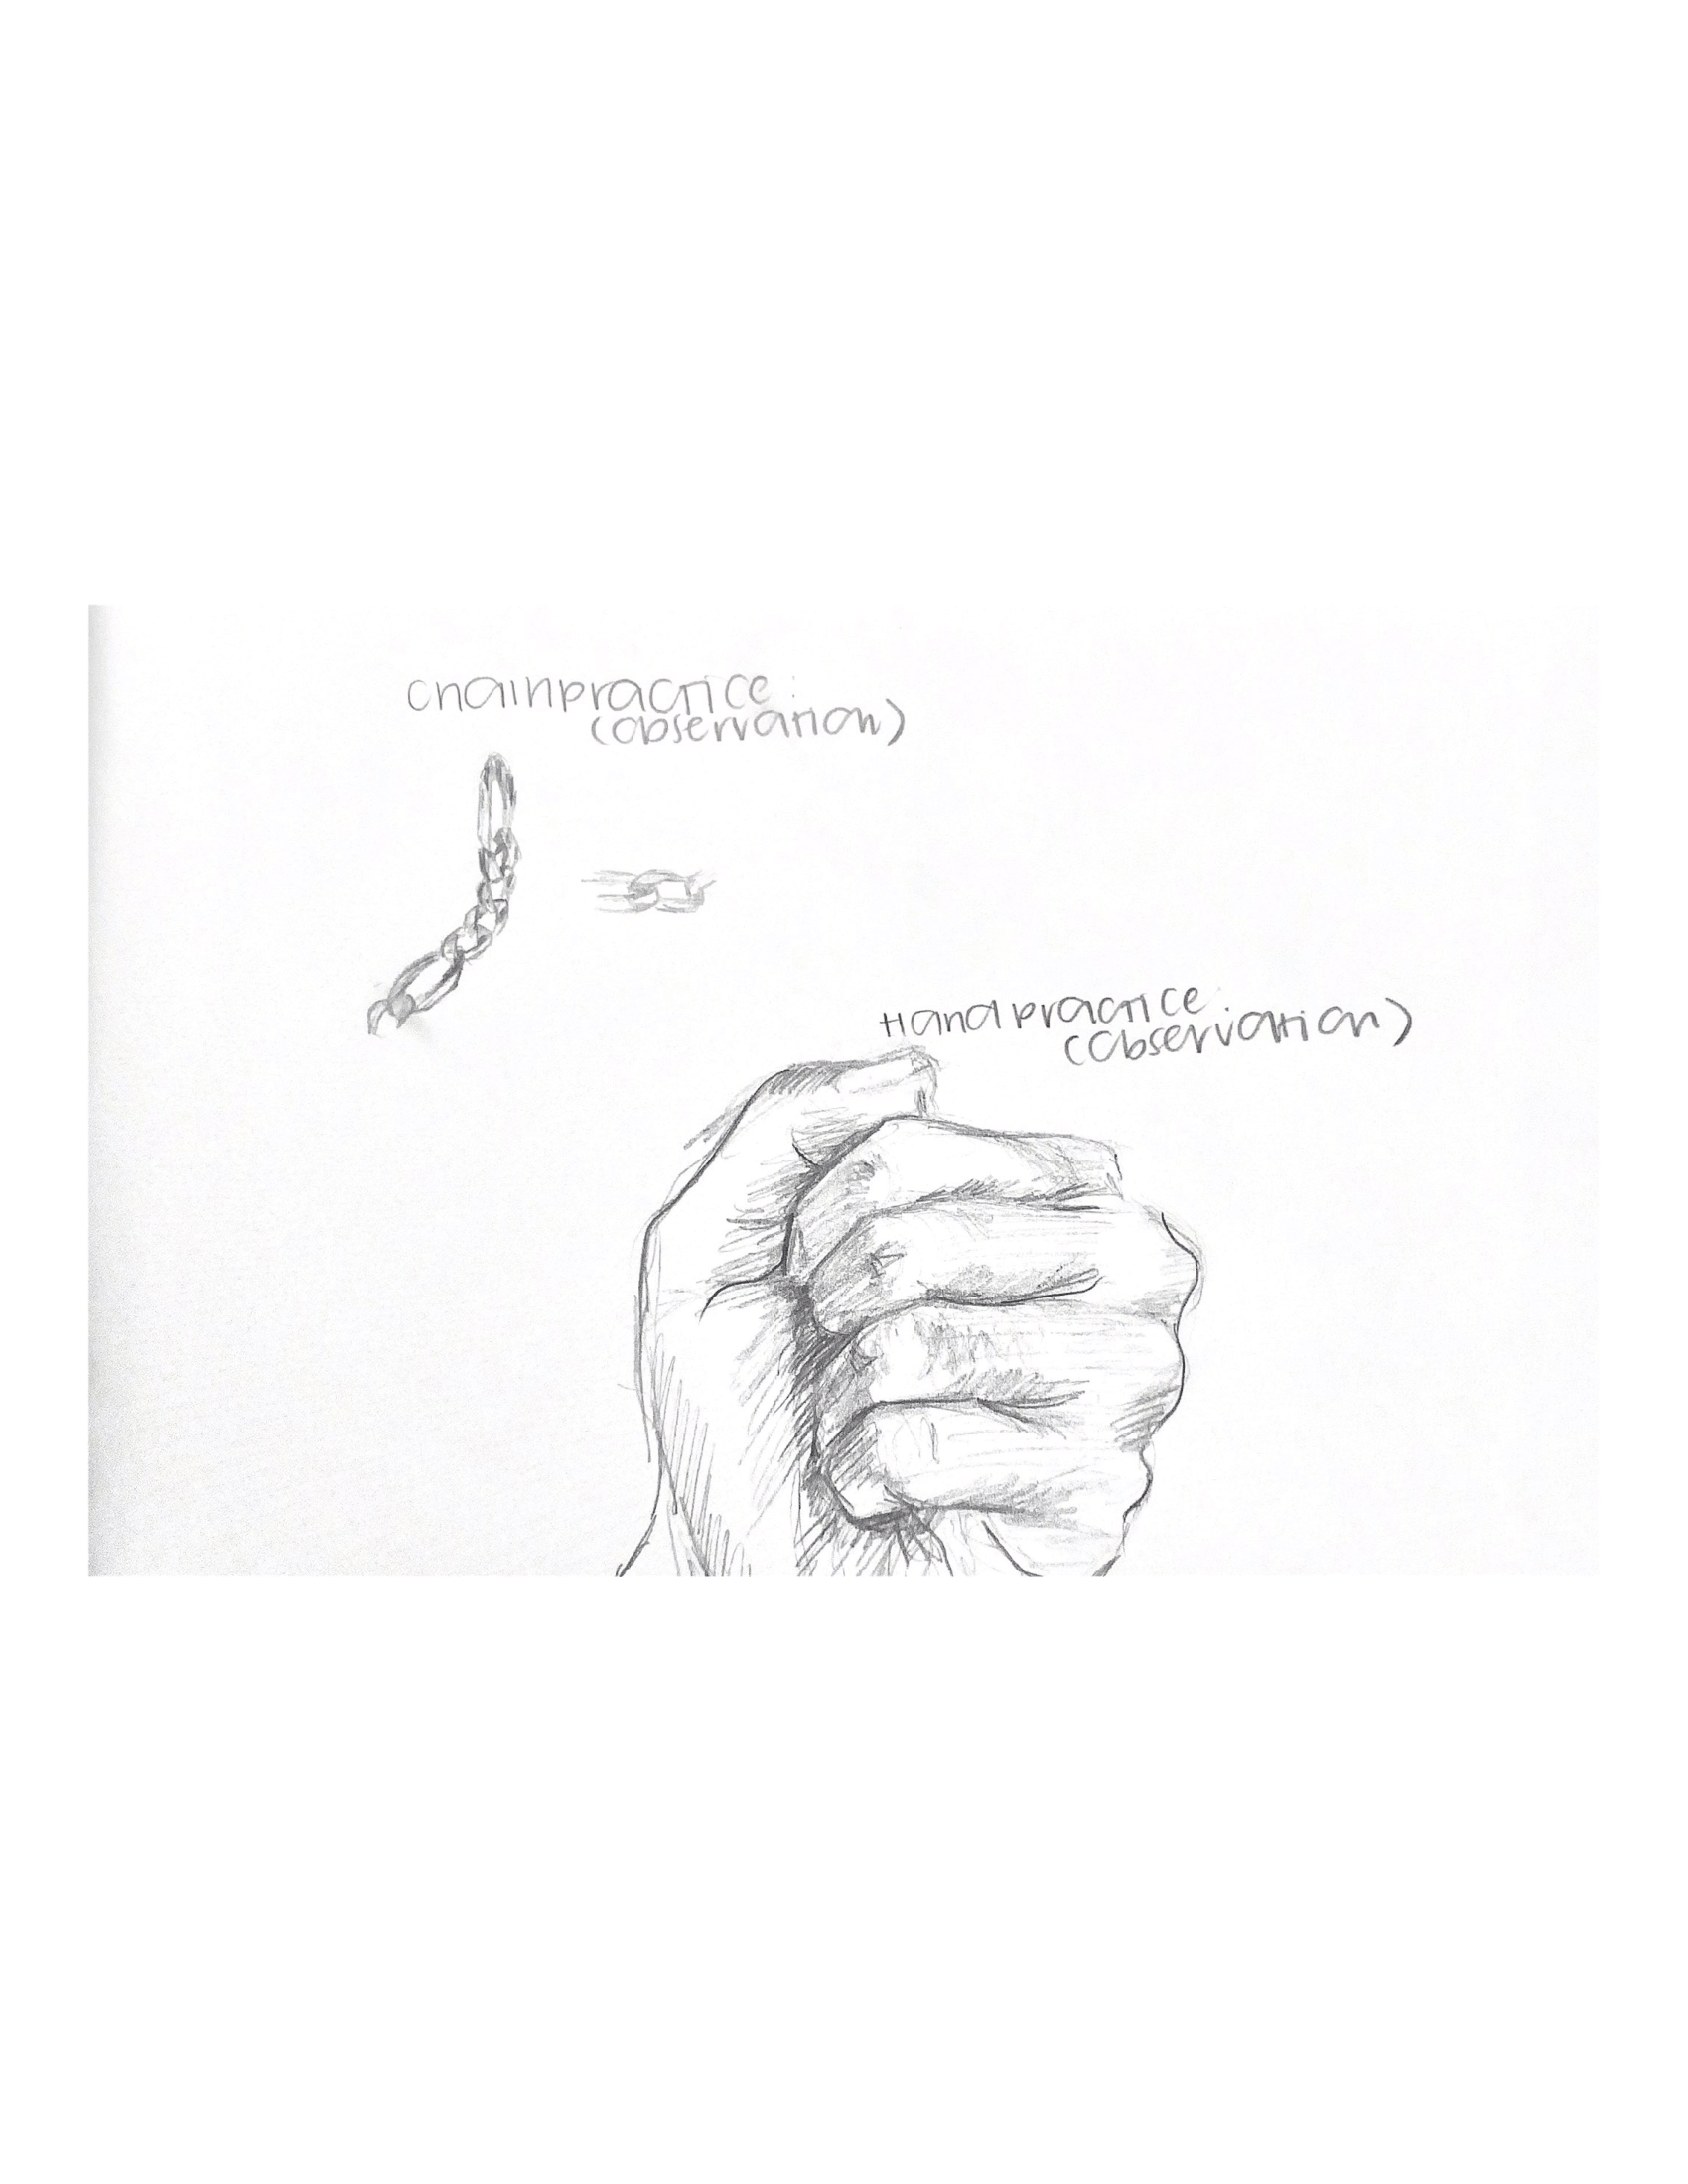 Chain practice :
(observation)
Hand practice :
(observation)